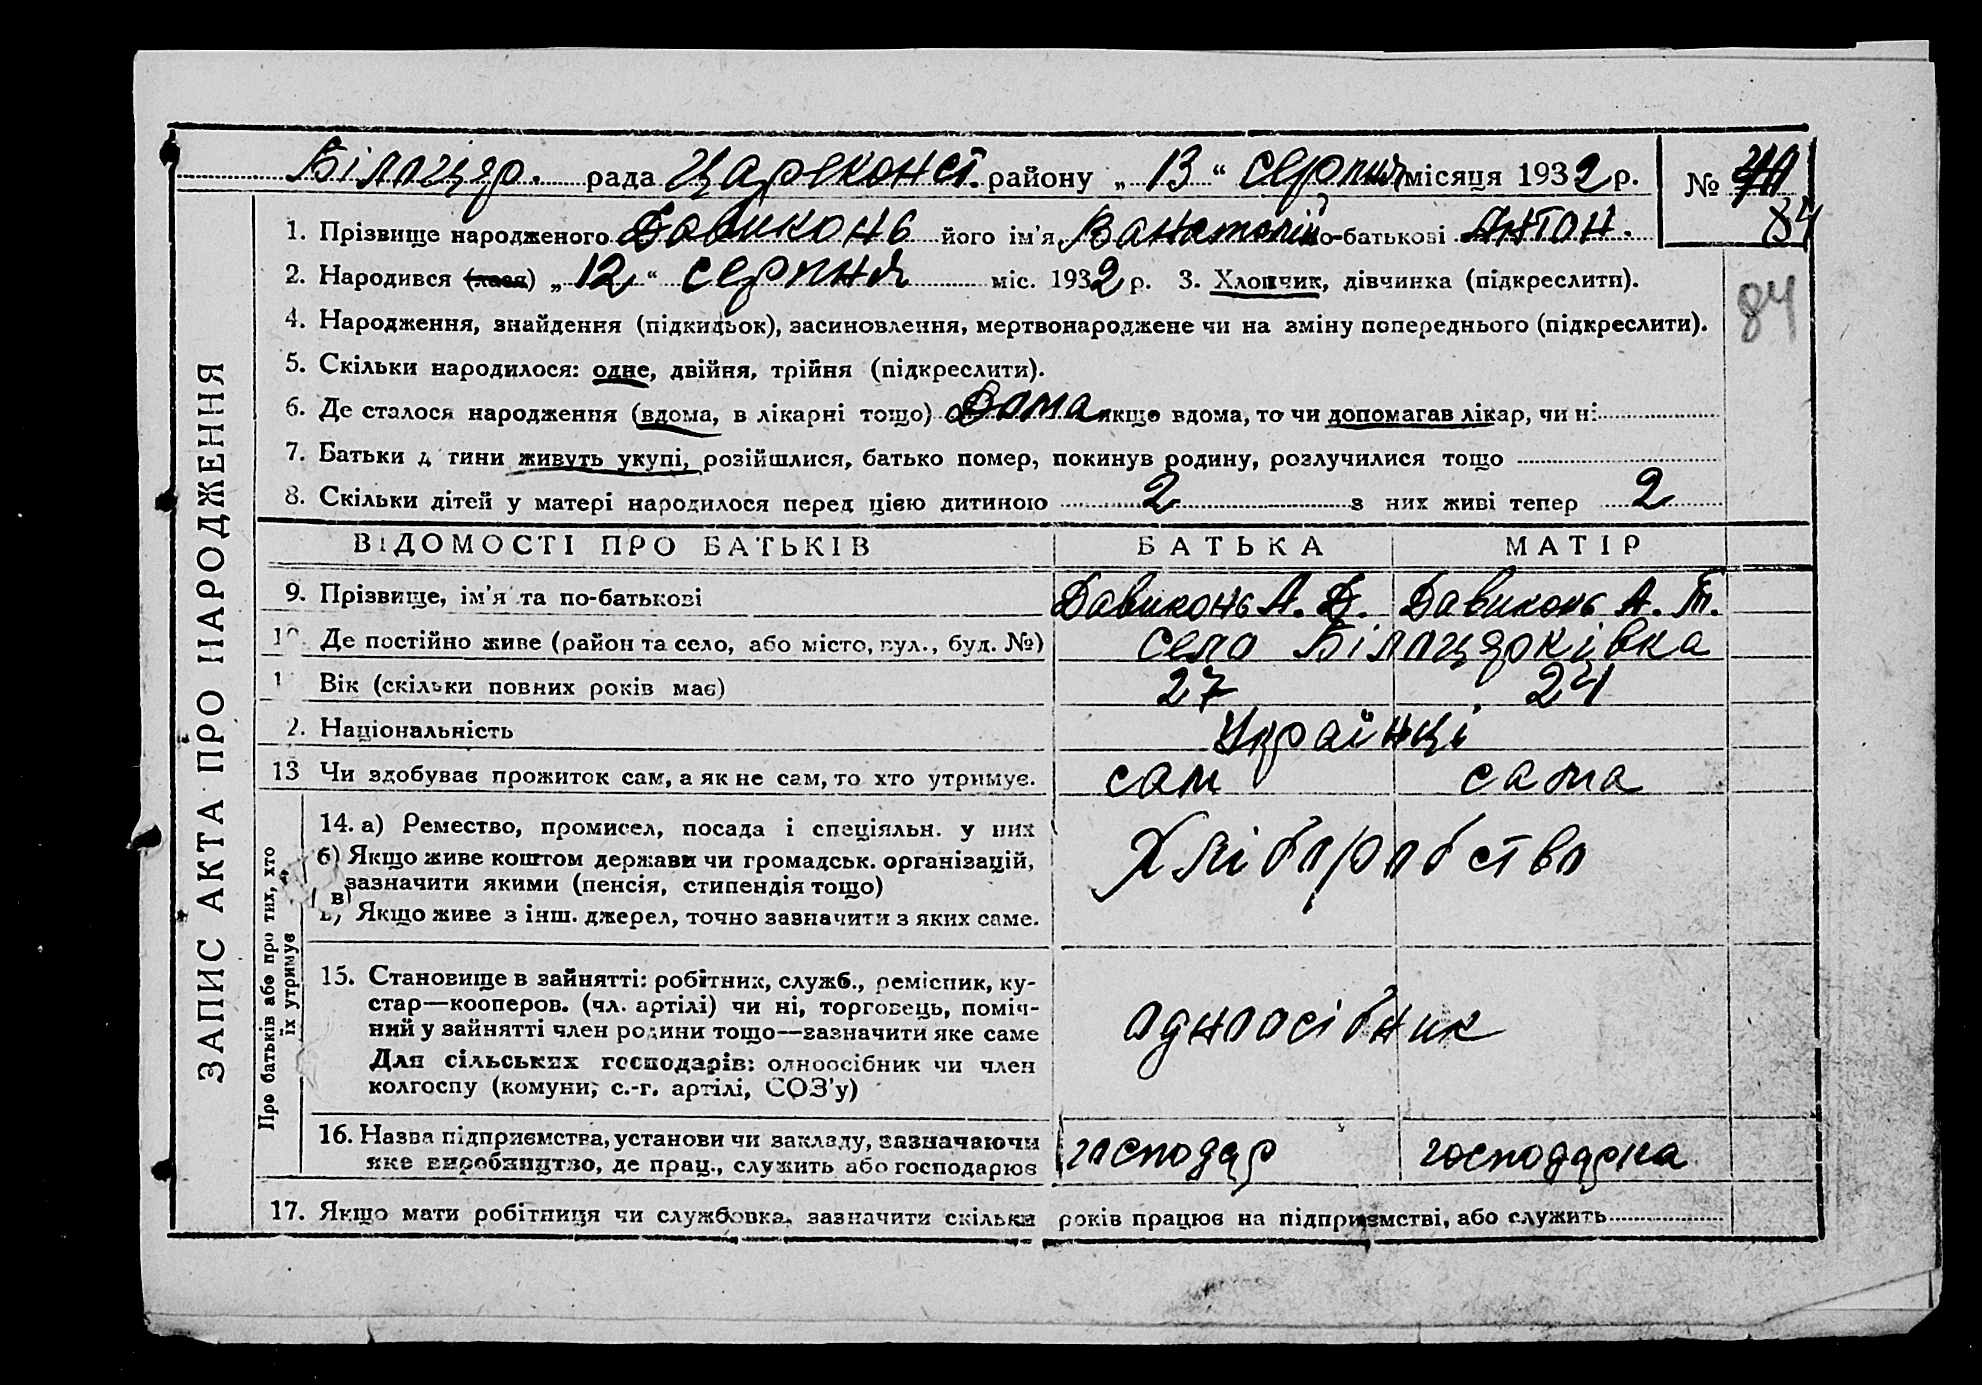 Білоцерк. рада Цареконст. району „ 13 “ серпня місяця 1932 р. №
84
1. Прізвище народженого Давиконь його ім'я Ванатолій по-батькові Антон.
2. Народився (лася) „ 12 “ серпня міс. 1932 р. 3. Хлопчик, дівчинка (підкреслити).
84
4. Народження, знайдення (підкидьок), засиновлення, мертвонароджене чи на зміну попереднього (підкреслити).
5. Скільки народилося: одне, двійня, трійня (підкреслити).
6. Де сталося народження (вдома, в лікарні тощо) Дома якщо вдома, то чи допомагав лікар, чи ні:
7. Батьки д тини живуть укупі, розійшлися, батько помер, покинув родину, розлучилися тощо
8. Скільки дітей у матері народилося перед цією дитиною 2 з них живі тепер 2
ЗАПИС АКТА ПРО НАРОДЖЕННЯ
ВІДОМОСТІ ПРО БАТЬКІВ БАТЬКА МАТІР
9. Прізвище, ім'я та по-батькові Давиконь А. Д. Давиконь А. Т.
10. Де постійно живе (район та село, або місто, вул., буд. №) село Білоцерківка
1 Вік (скільки повних років має) 27 24
2. Національність Українці
13 Чи здобував прожиток сам, а як не сам, то хто утримує. сам сама
Про батьків або про тих, хто
їх утримує
14. а) Ремество, промисел, посада і спеціяльн. у них
б) Якщо живе коштом держави чи громадськ. організацій,
зазначити якими (пенсія, стипендія тощо)
в) Якщо живе з інш. джерел, точно зазначити з яких саме.
Хліборобство
15. Становище в зайнятті: робітник, служб., ремісник, ку-
стар—кооперов. (чл. артілі) чи ні, торговець, поміч-
ний у зайнятті член родини тощо—зазначити яке саме
Для сільських господарів: одноосібник чи член
колгоспу (комуни, с.-г. артілі, СОЗ'у)
одноосібник
16. Назва підприємства, установи чи закладу, зазначаючи
яке виробництво, де прац., служить або господарює
господар господарка
17. Якщо мати робітниця чи службовка, зазначити скільки років працює на підприємстві, або служить